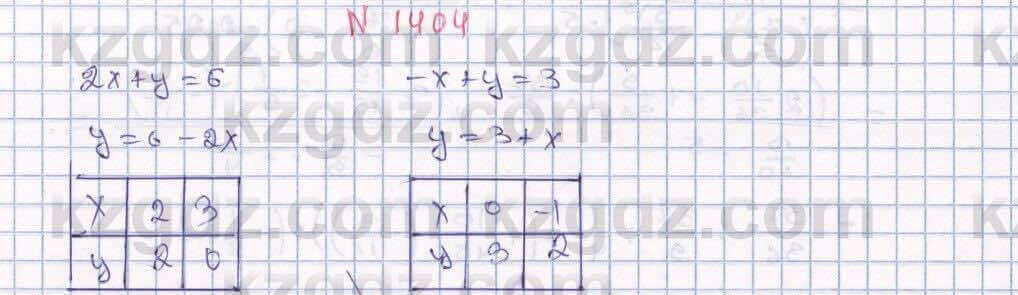 N 1404
2x+y=6 -x+y=3
y=6-2x y=3+x
x 2 3 x 0 -1
y 2 0 y 3 2
kzgdz.com kzgdz.com
kzgdz.com
kzgdz.com kzgdz.com